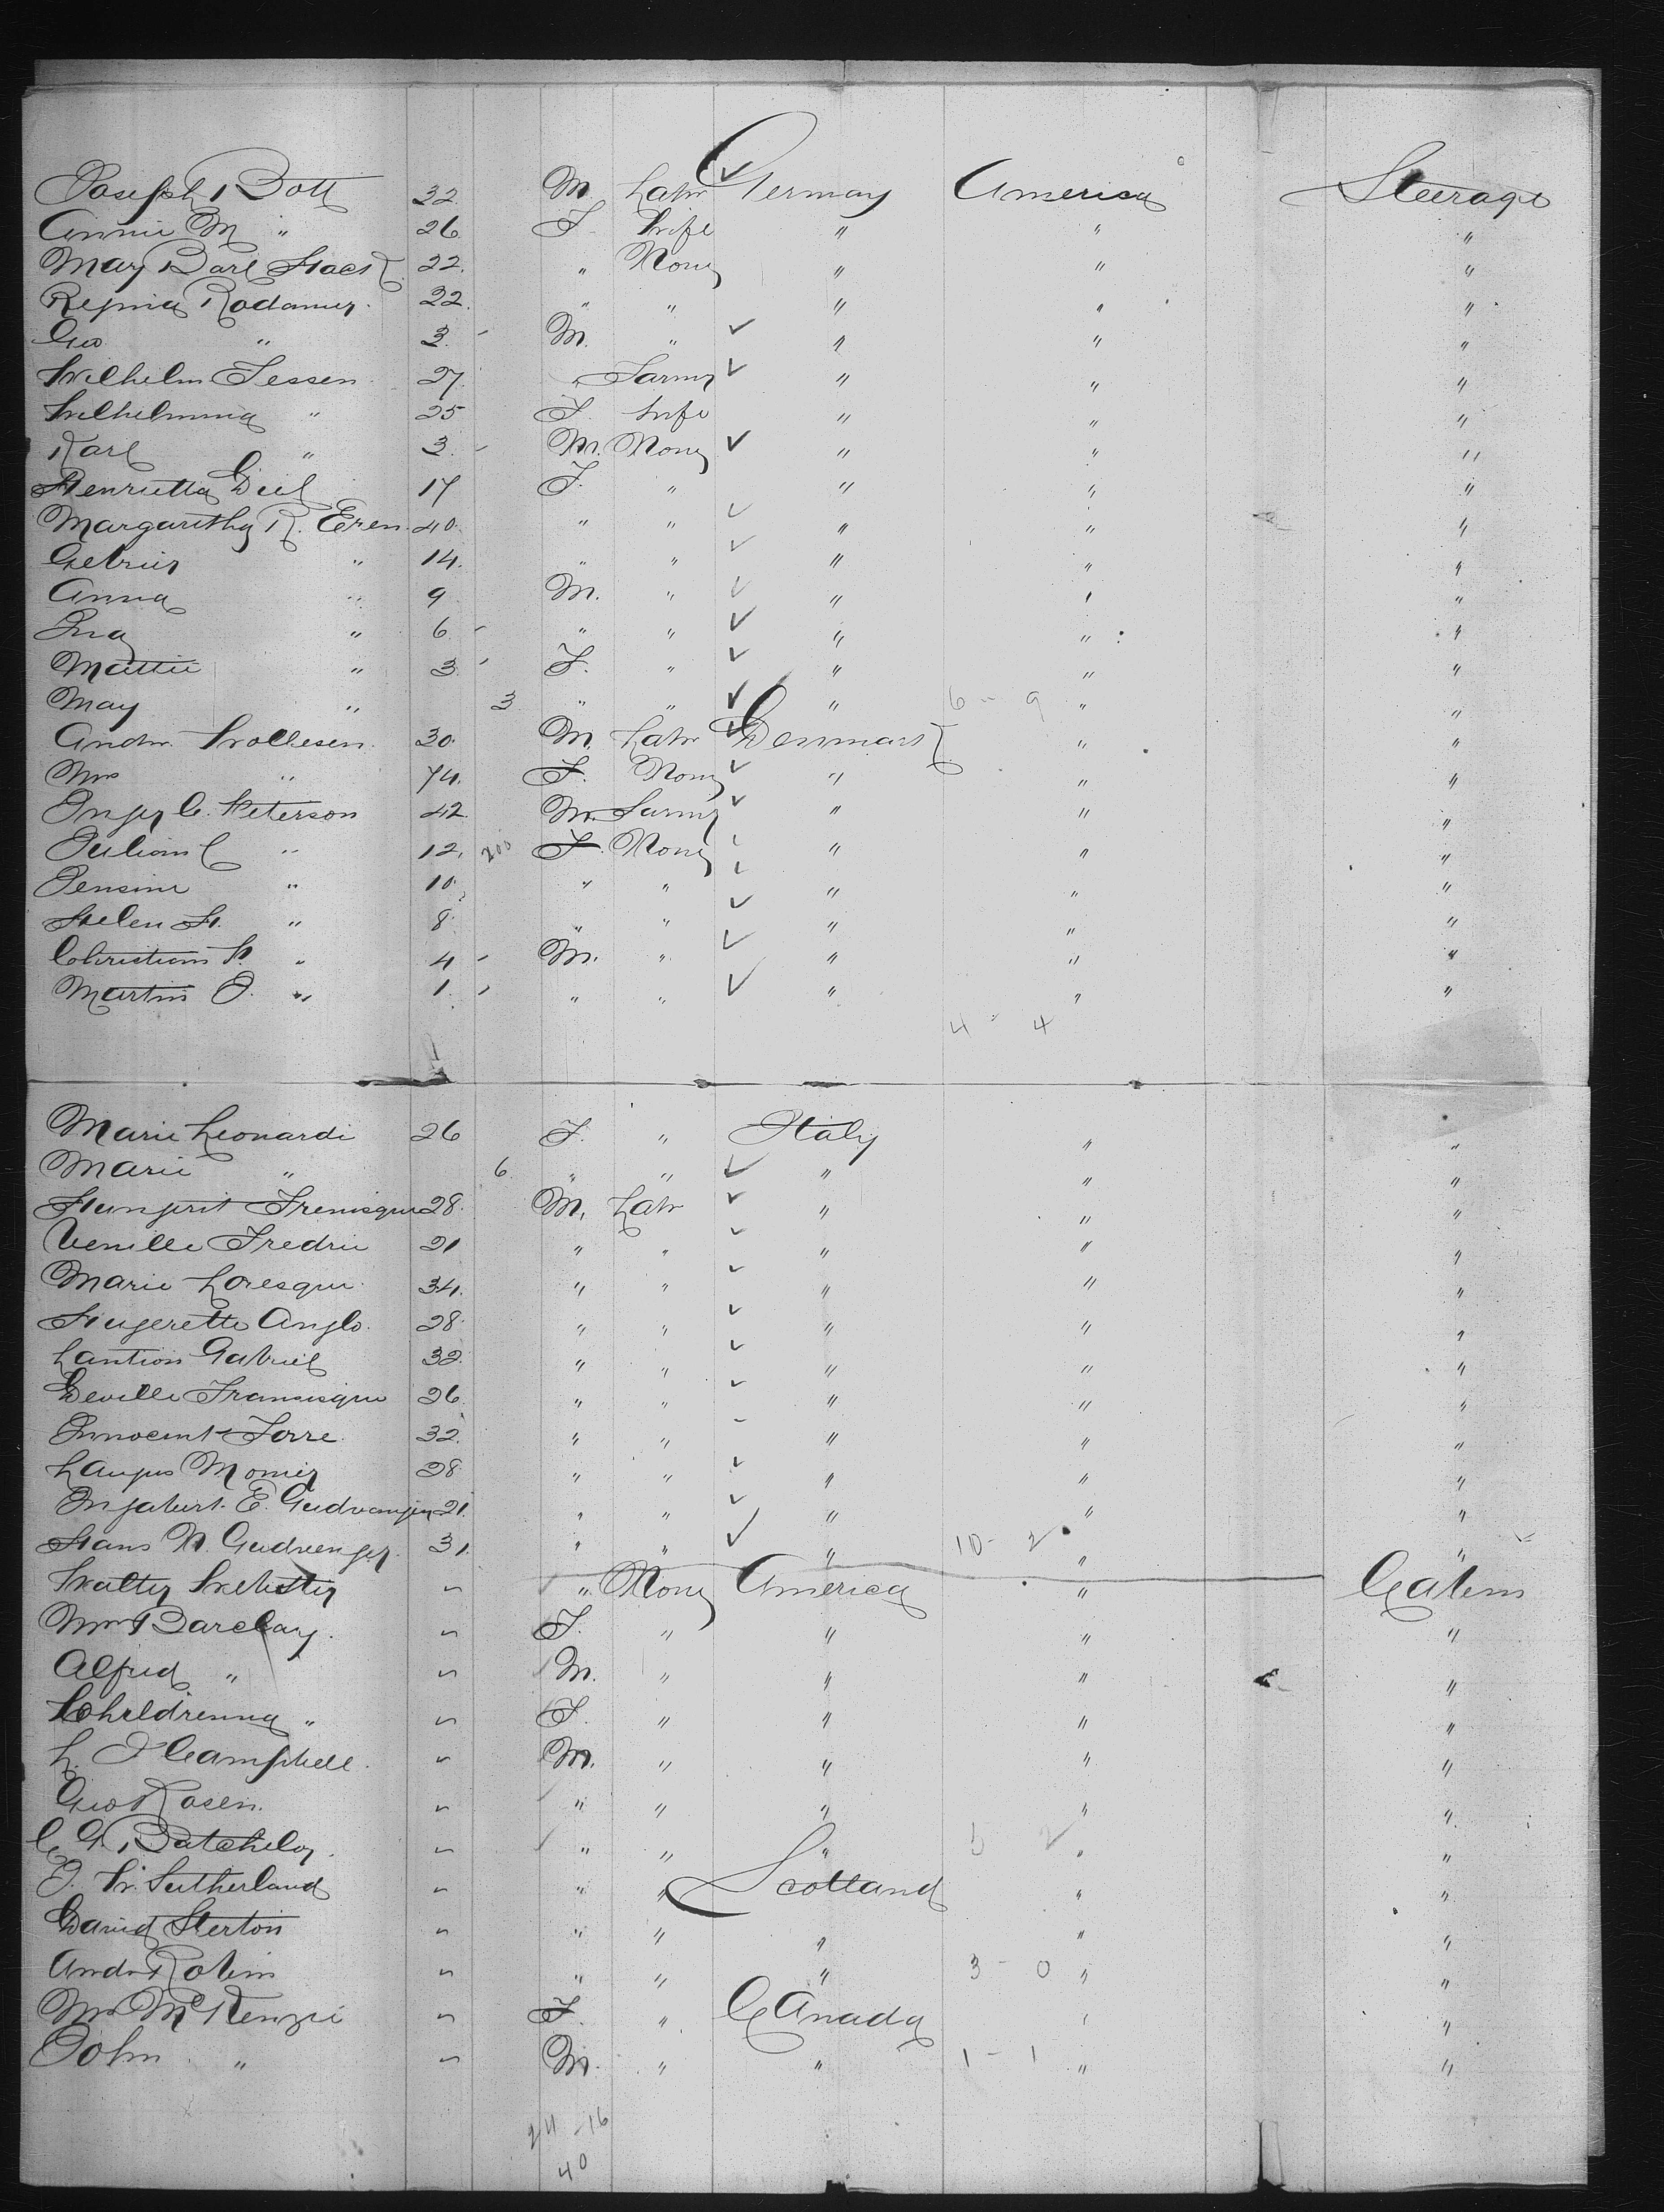 Joseph Bott 32. M. Labr Germay America Steerage
Annie M " 26. F Wife " " "
May Barl Hack 22. " None " " "
Regina Rodamer. 22. " " " " "
Geo " 3. - M. " ✓ " " "
Wilhelm Jessen 27. " Farmr ✓ " " "
Wilhelmina " 25 F. Wife " " "
Karl " 3. - M. None ✓ " " "
Henrietta Diel 17 F. " " " "
Margaritha R. Eren. 40. " " ✓ " " "
" 14. " " ✓ " " "
Anna " 9 M. " ✓ " " "
Ina " 6. - " " ✓ " " "
Mattie " 3 - F. " ✓ " " "
May " 3 " " ✓ " 6 - 9 " "
Andw. Wollesen. 30. M. Labr ✓ Denmark " "
Mrs " 74. F. None ✓ " " "
Inger C. Peterson 42. M. Farmr ✓ " " "
Juliam C " 12. 200 F. None ✓ " " "
Jensine " 10. " " ✓ " " "
Helen H. " 8. " " ✓ " " "
Christian P. " 4 - M. " ✓ " " "
Martin J. " 1. - " " ✓ " " "
4 - 4
Marie Leonardi 26 F. " Italy " "
Marie " 6. " " ✓ " " "
28. M. Labr ✓ " " "
Venille Fredric 21 " " ✓ " " "
Marie Loresque. 34. " " ✓ " " "
Hugerette Anglo. 28. " " ✓ " " "
Lantion Gabriel 32. " " ✓ " " "
Deville Fransisque 26. " " ✓ " " "
Innocent Forre. 32. " " - " " "
Momier 28. " " ✓ " " "
Ingabert. E. Gudvanger 21. " " ✓ " " "
Hans N. Gudvenger. 31. " " ✓ " 10 - 2 " "
Walter Webster " None America " Cabin
Mrs Barclay. F. " " " "
Alfred " M. " " " "
" F. " " " "
L. J Campbell. M. " " " "
Geo Rosen. " " " " "
C G Batchelor. " " " 5 2 " "
J. W. Sutherland " " Scotland " "
David Sterton " " " " "
Andw Robin " " " 3 - 0 " "
Mrs McKenzie F. " Canada " "
John " M. " " 1 - 1 " "
24 - 16
40